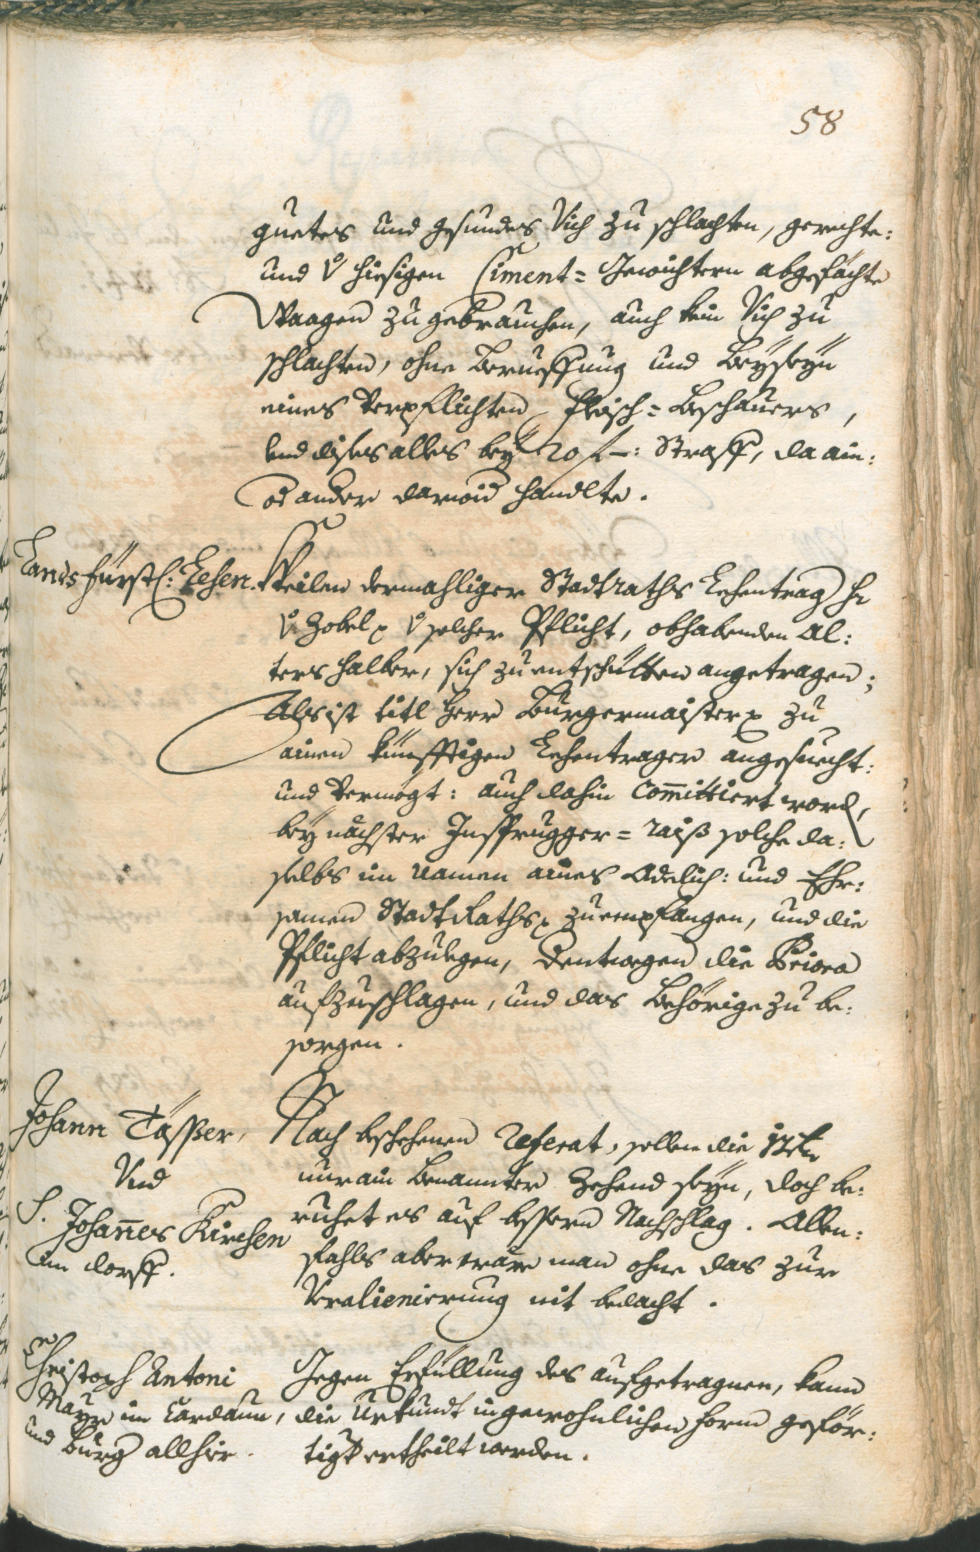 58
guetes und gesundes Vich zu schlachten, gerechte:
und v hiesigen Ciment= Gewichtern abgefächte
Waagen zugebrauchen, auch kein Vich zu
schlachten, ohne Berueffung und Beyseyn
eines verpflichten Fleisch= beschauers,
und dises alles bey 20 f –: Straff, da ain:
od ander darwid handlte.
Landsfürstl: Lehen.
Weilen dermahliger Stadtraths Lehentrag H
v Zobel v solcher Pflicht, obhabenden Al:
ters halber, sich zuentschütten angetragen;
Als ist titl Herr Burgermaister zu
ainen künfftigen Lehentrager angesuecht:
und vermögt: auch dahin Committiert word,
bey nächster Insprugger= raiß solche da:
selbs im Namen aines Adelich: und Ehr:
samen StadtRaths zuempfangen, und die
Pflicht abzulegen, dentwegen die Priora
aufzuschlagen, und das Behörige zu be:
sorgen.
Johann Täsßer,
Und
S. Johannes Kirchen
im dorff.
Nach beschehenen Referat, sollen die
nur ain benannter Zehend seyn, doch be:
ruhet es auf bessern Nachschlag. Allen:
fahls aber wäre man ohne das zur
Veralienierung nit bedacht.
Christoph Antoni
Mayr im Cardaun,
und burg allhir.
Gegen Erfüllung des aufgetragnen, kann
die Urkundt in gewohnlichen form geför:
tigt ertheilt werden.